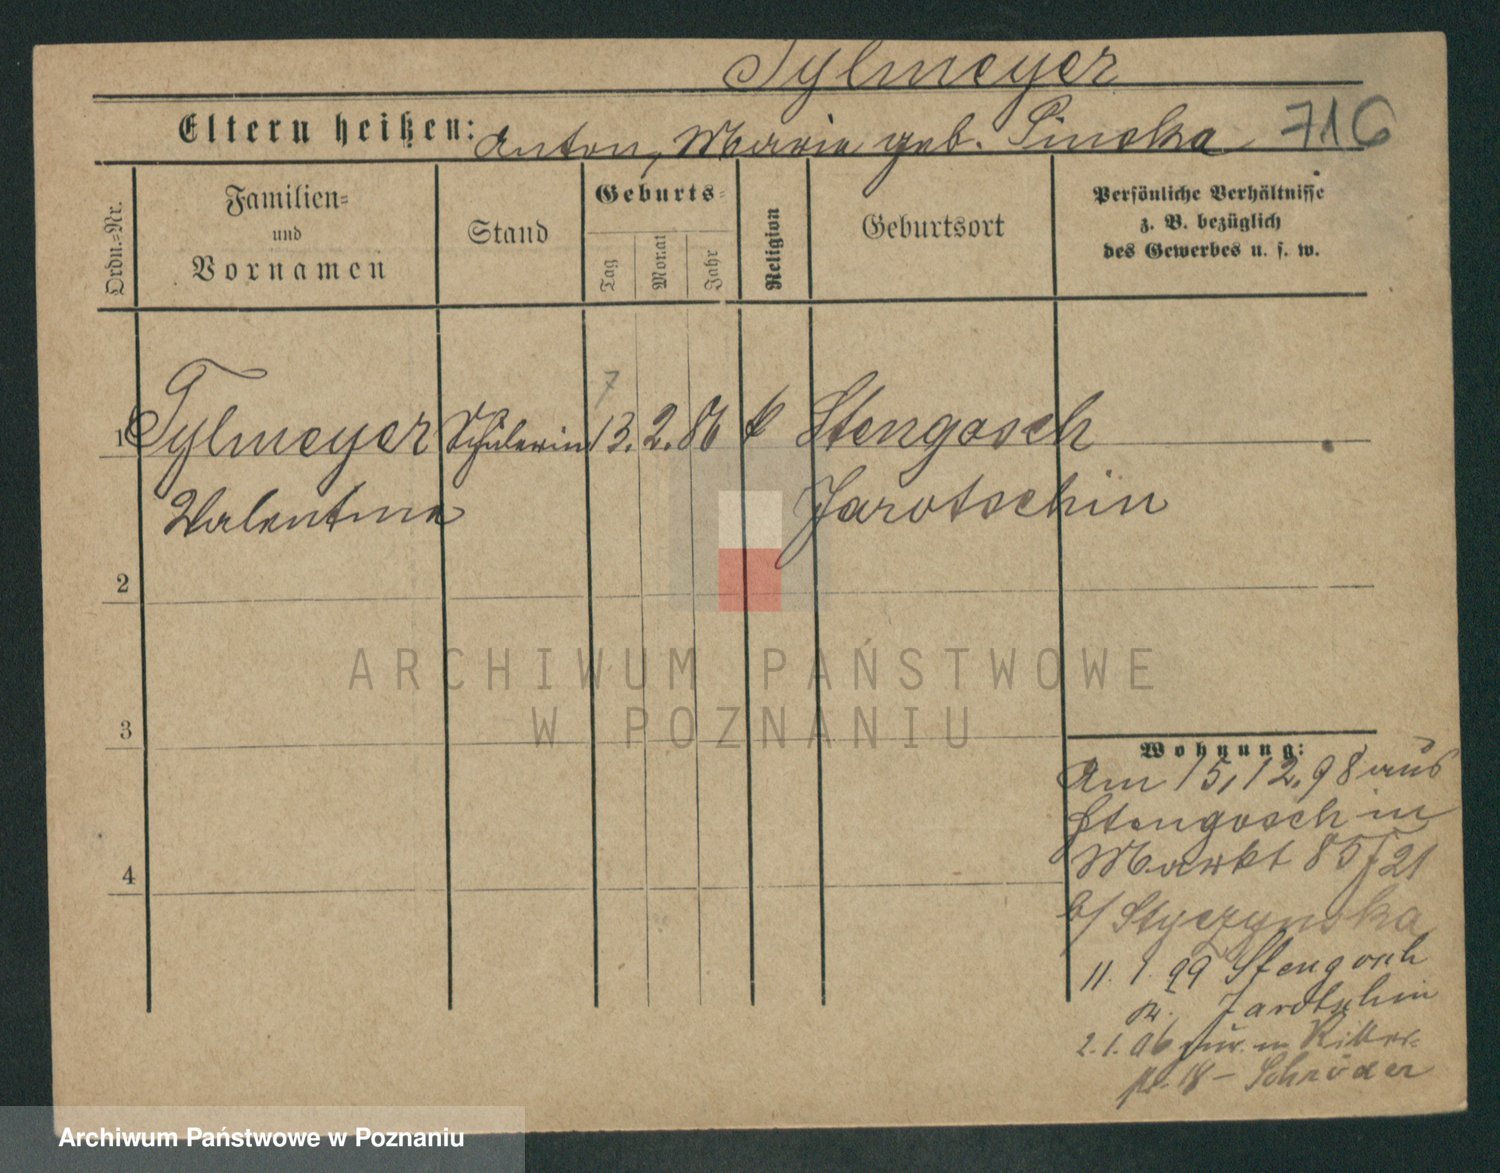 Tylmeyer
Eltern heißen: Anton, Marie geb. Sinska 716
Ordn.=Nr.
Familien=
und
Vornamen
Stand
Geburts=
Tag
Monat
Jahr
Religion
Geburtsort
Persönliche Verhältnisse
z. B. bezüglich
des Gewerbes u. s. w.
7
1 Tylmeyer Schülerin 13. 2. 86 k Stengosch
Valentina Jarotschin
2
3
4
ARCHIWUM PAŃSTWOWE
W POZNANIU
Wohnung:
Am 15,12.98 aus
Stengosch in
Markt 85/21
b/ Styczynska
11. 1. 99 Stengosch
Kr. Jarotschin
2.1.06 zur. in Ritter=
18 - Schröder
Archiwum Państwowe w Poznaniu